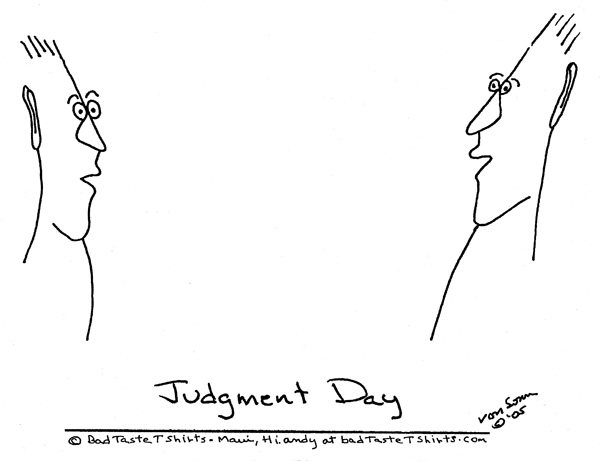 Judgment Day
von Sonn
©'05
© BadTasteTShirts - Maui, Hi. andy at badTasteTShirts.com